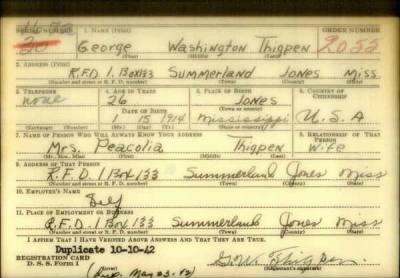 SERIAL NUMBER 1. NAME (Print) ORDER NUMBER
George Washington Thigpen 2052
(First) (Middle) (Last)
2. ADDRESS (Print)
R.F.D. 1. Box 133 Summerland Jones Miss
(Number and street or R. F. D. number) (Town) (County) (State)
3. TELEPHONE 4. AGE IN YEARS 5. PLACE OF BIRTH 6. COUNTRY OF CITIZENSHIP
none 26 Jones
DATE OF BIRTH
15 1914 Mississippi U.S.A
(Exchange) (Number) (Mo.) (Day) (Yr.) (State or country)
7. NAME OF PERSON WHO WILL ALWAYS KNOW YOUR ADDRESS 8. RELATIONSHIP OF THAT PERSON
Mrs. Peacolia Thigpen Wife
(Mr., Mrs., Miss) (First) (Middle) (Last)
9. ADDRESS OF THAT PERSON
R.F.D. 1 Box 133 Summerland Jones Miss
(Number and street or R. F. D. number) (Town) (County) (State)
10. EMPLOYER'S NAME
Self
11. PLACE OF EMPLOYMENT OR BUSINESS
R.F.D. 1 Box 133 Summerland Jones Miss
(Number and street or R. F. D. number) (Town) (County) (State)
I AFFIRM THAT I HAVE VERIFIED ABOVE ANSWERS AND THAT THEY ARE TRUE.
Duplicate 10-10-42
REGISTRATION CARD
D. S. S. Form 1 G.W. Thigpen
(Registrant's signature)